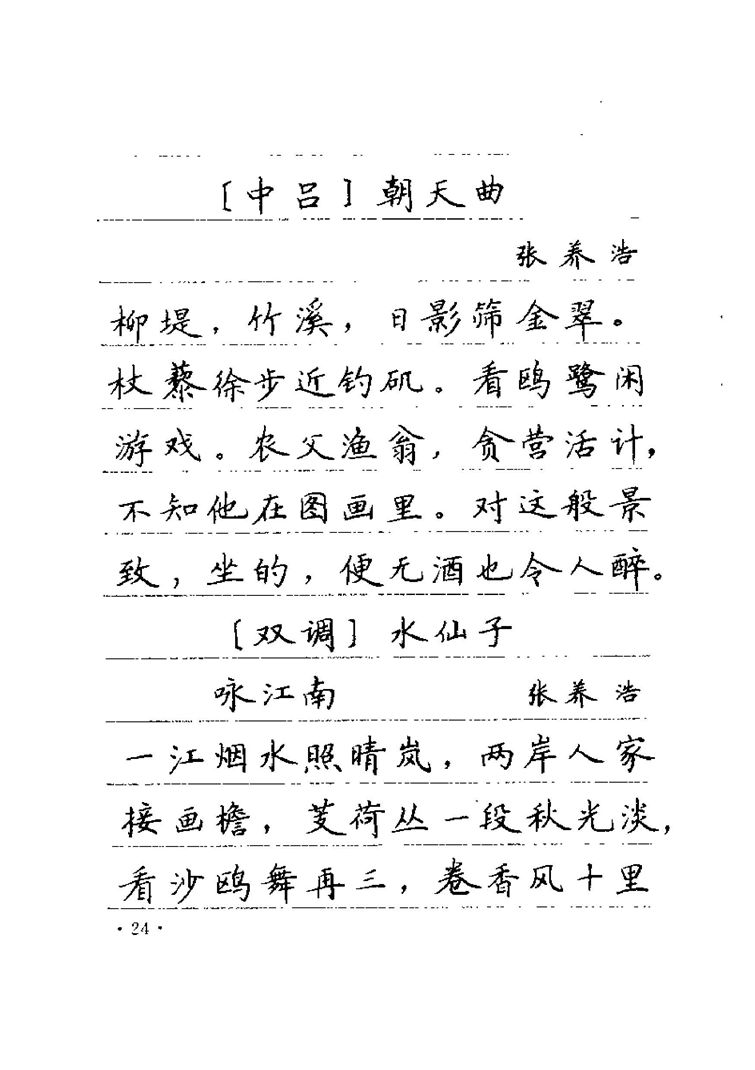 ［中吕］朝天曲
张养浩
柳堤，竹溪，日影筛金翠。
杖藜徐步近钓矶。看鸥鹭闲
游戏。农父渔翁，贪营活计，
不知他在图画里。对这般景
致，坐的，便无酒也令人醉。
［双调］水仙子
咏江南 张养浩
一江烟水照晴岚，两岸人家
接画檐，芰荷丛一段秋光淡，
看沙鸥舞再三，卷香风十里
·24·